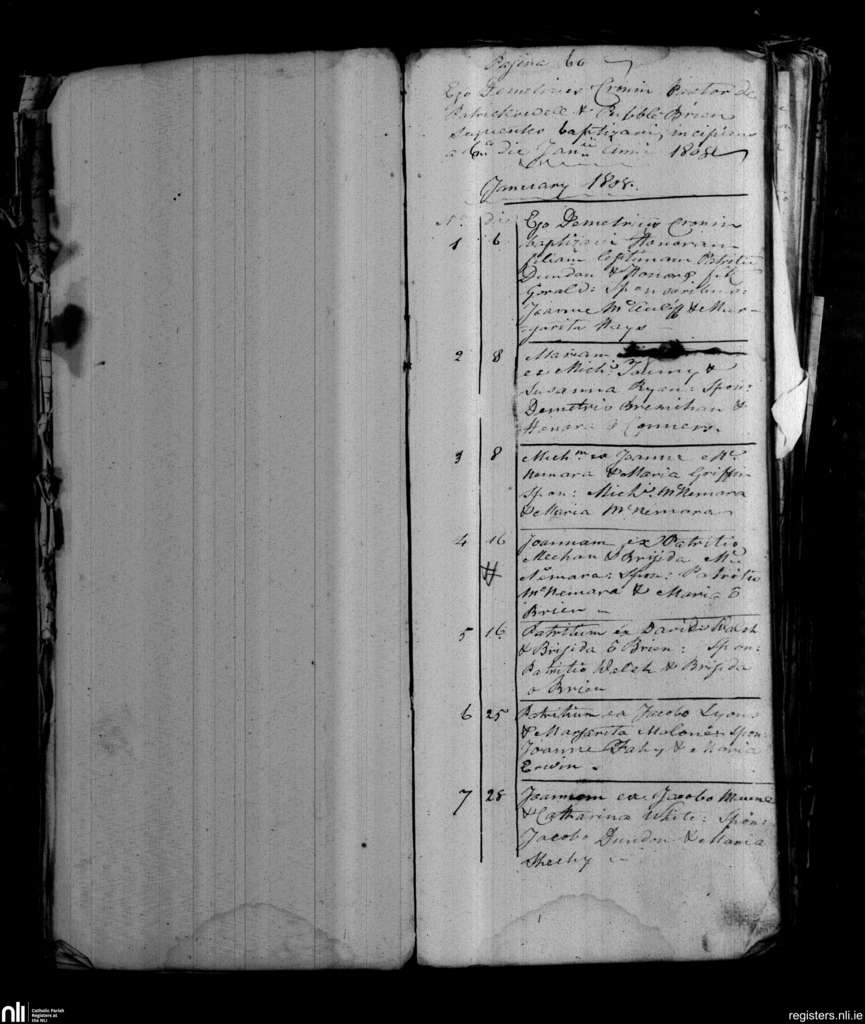 Pagina 60
Ego Demetrius Cronin Pastor de
Patrickswell & Pubble Brien
sequentes baptizavi, incipiens
a 6ta die Janii anni 1808
January 1808.
No. die Ego Demetrius Cronin
1 6 baptizavi Honoram
filiam legitimam Patritii
Dundon & Honoræ fitz
Gerald: Sponsoribus:
Joanne McAuliff & Mar-
-garita Hays -
2 8 Mariam
ex Michl. & 
Susanna Ryan: Spon:
Demetrio Bresnihan &
Honora o Conners.
3 8 Michm ex Joanne Mc
Nemara & Maria Griffin
Spon: Michl. McNemara
& Maria McNemara
4 16 Joannam ex Patritio
Meehan & Brigida Mc
Nemara: Spon: Patritio
McNemara & Maria O
Brien -
5 16 Patritium ex Davide Walsh
& Brigida O Brien: Spon:
Patritio Welsh & Brigida
o Brien
6 25 Patritium ex Jacobo Lyons
& Margarita Melones Spon:
Joanne Fahy & Maria
Erwin.
7 28 Joannem ex Jacobo
& Catharina White: Spon:
Jacobo Dundon & Maria
Sheehy -
nli
Catholic Parish
Registers at
the NLI
registers.nli.ie